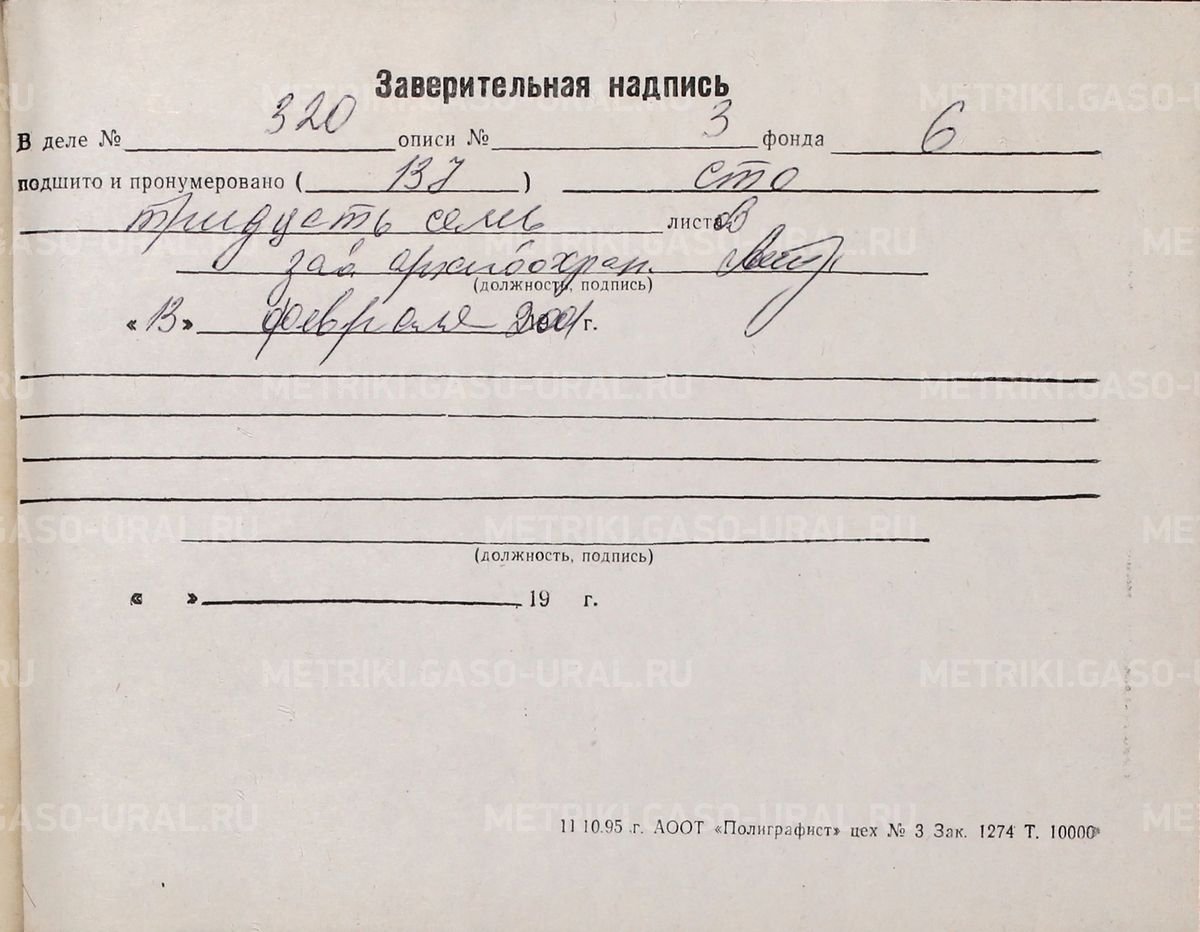 Заверительная надпись
В деле № 320 описи № 3 фонда 6
подшито и пронумеровано ( 137 ) сто
тридцать семь листов
зав. архивохран.
(должность, подпись)
« 13 » февраля 2001 г.
(должность, подпись)
« » 19 г.
11 10.95 .г. АООТ «Полиграфист» цех № 3 Зак. 1274 Т. 10000
METRIKI.GASO-URAL.RU